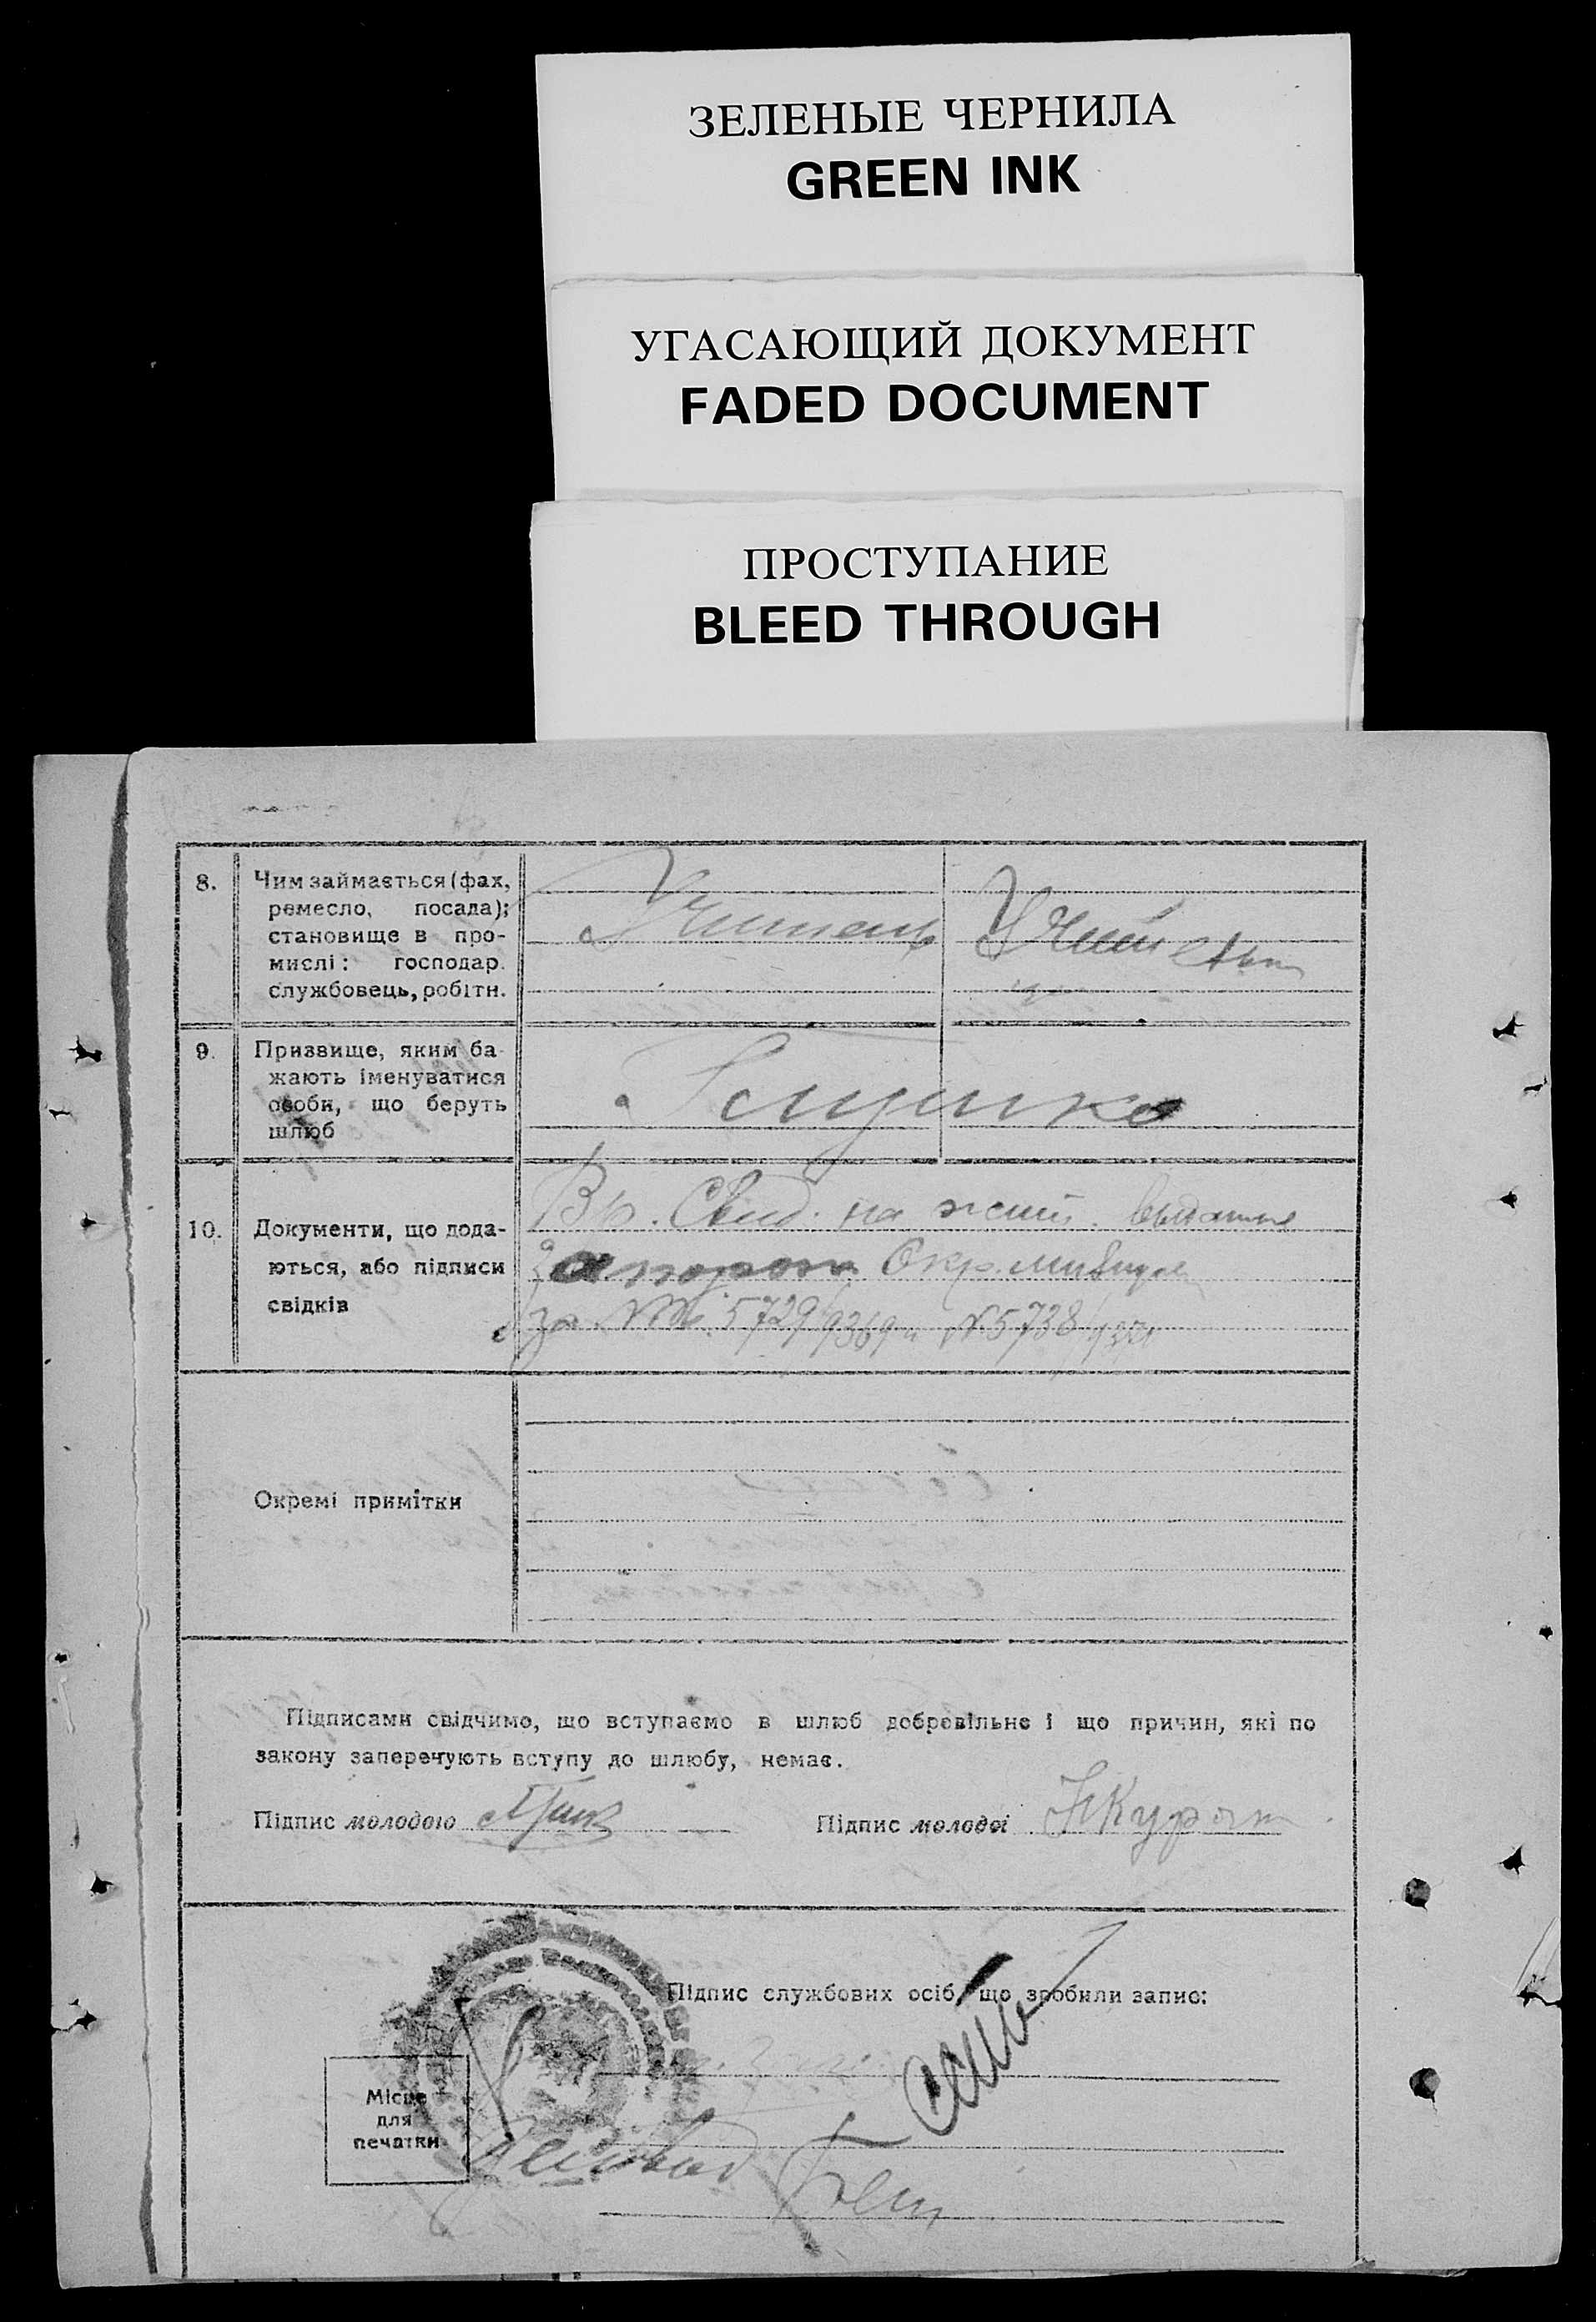 ЗЕЛЕНЫЕ ЧЕРНИЛА
GREEN INK
УГАСАЮЩИЙ ДОКУМЕНТ
FADED DOCUMENT
ПРОСТУПАНИЕ
BLEED THROUGH
8.
Чим займається (фах,
ремесло, посада);
становище в про-
мислі: господар.
службовець, робітн.
Учитель
Учитель
9.
Призвище, яким ба-
жають іменуватися
особи, що беруть
шлюб
10.
Документи, що дода-
ються, або підписи
свідків
на
Окр.
за 5729/9369 и N 5738/
Окремі примітки
Підписами свідчимо, що вступаємо в шлюб добровільне і що причин, які по
закону заперечують вступу до шлюбу, немає.
Підпис молодого
Підпис молодої
Підпис службових осіб, що зробили запис:
Місце
для
печатки